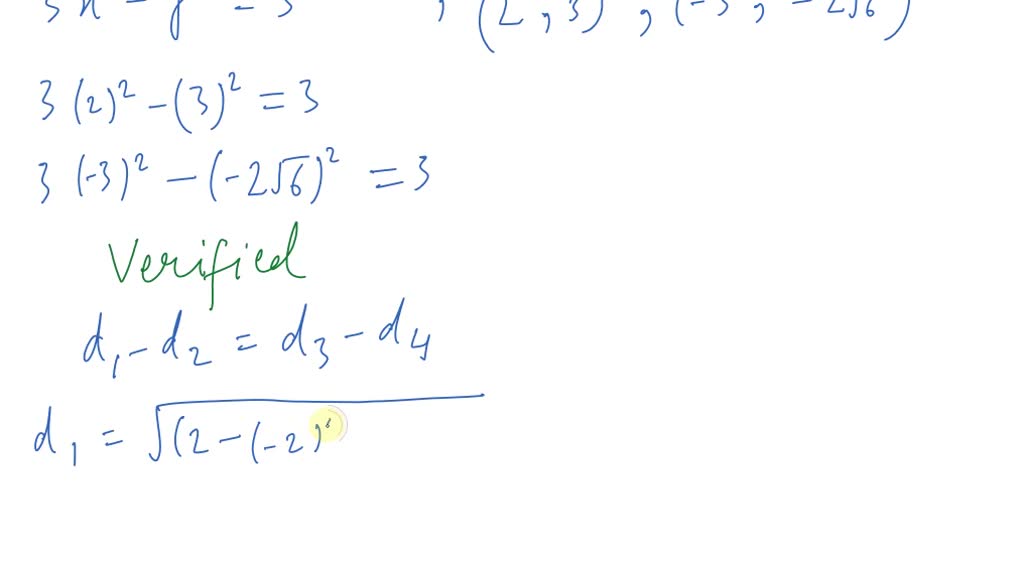 = 3 , (2, 3), (-3, -2√6)
3 (2)² - (3)² = 3
3 (-3)² - (-2√6)² = 3
Verified
d₁ - d₂ = d₃ - d₄
d₁ = √(2 - (-2)